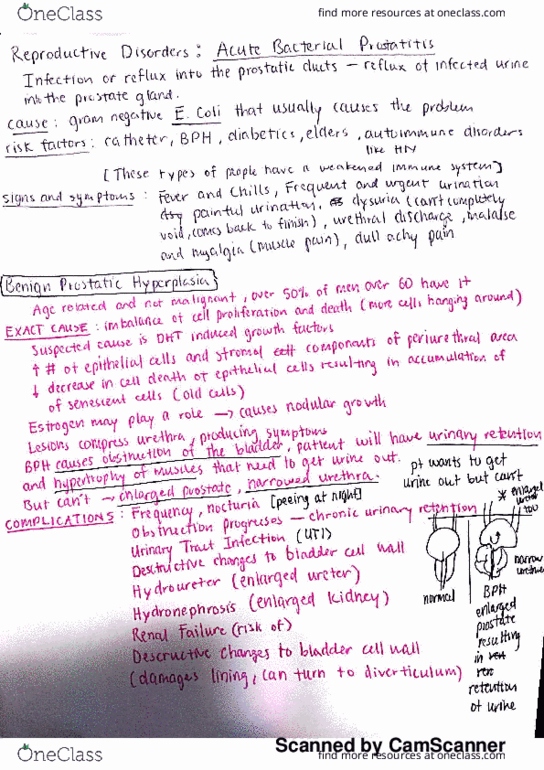 OneClass
find more resources at oneclass.com
Reproductive Disorders: Acute Bacterial Prostatitis
Infection or reflux into the prostatic ducts – reflux of infected urine
into the prostate gland.
cause: gram negative E. Coli that usually causes the problem
risk factors: catheter, BPH, diabetics, elders, autoimmune disorders
like HIV
[These types of people have a weakened immune system]
signs and symptoms: Fever and Chills, Frequent and urgent urination
painful urination, dysuria (can't completely
void, comes back to finish), urethral discharge, malaise
and myalgia (muscle pain), dull achy pain
Benign Prostatic Hyperplasia
Age related and not malignant, over 50% of men over 60 have it
EXACT CAUSE: imbalance of cell proliferation and death (more cells hanging around)
Suspected cause is DHT induced growth factors
↑ # of epithelial cells and stromal components of periurethral area
↓ decrease in cell death of epithelial cells resulting in accumulation of
of senescent cells (old cells)
Estrogen may play a role → causes nodular growth
Lesions compress urethra, producing symptoms
BPH causes obstruction of the bladder, patient will have urinary retention
and hypertrophy of muscles that need to get urine out.
But can't → enlarged prostate, narrowed urethra.
pt wants to get
urine out but can't
COMPLICATIONS: Frequency, nocturia [peeing at night]
Obstruction progresses – chronic urinary retention
Urinary Tract Infection (UTI)
Destructive changes to bladder cell wall
Hydroureter (enlarged ureter)
Hydronephrosis (enlarged kidney)
Renal Failure (risk of)
Descructive changes to bladder cell wall
(damages lining, can turn to diverticulum)
* enlarged
ureter
too
narrow
urethra
normal
BPH
enlarged
prostate
resulting
in
retention
of urine
Scanned by CamScanner
OneClass
find more resources at oneclass.com